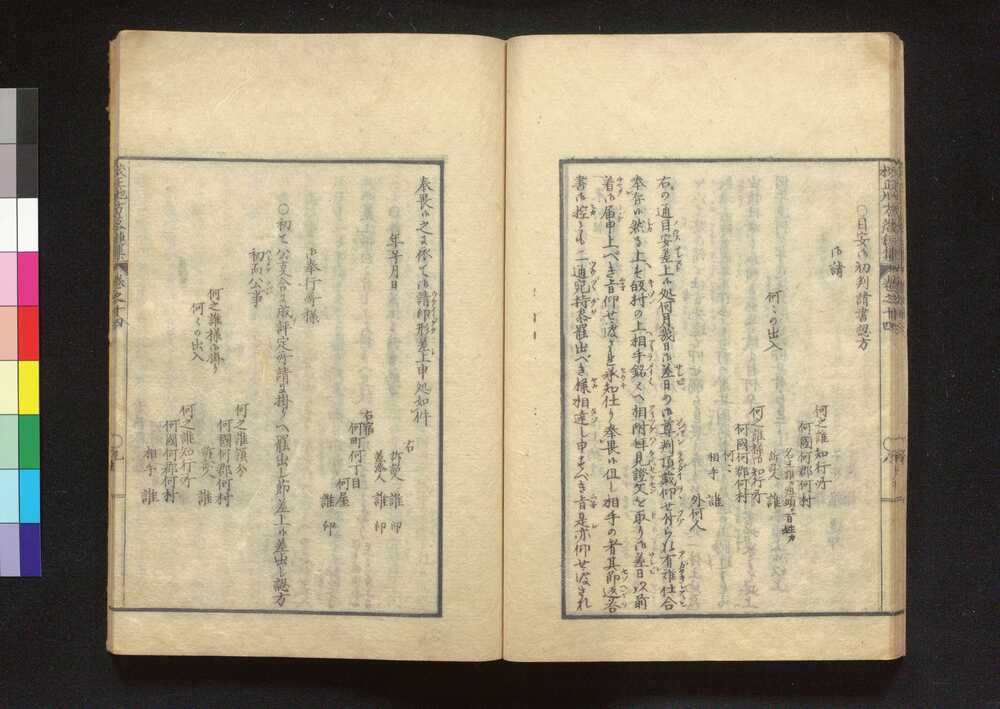 ○目安御初判請書認方
御請
何々の出入
何之誰知行所
何國何郡何村
訴訟人 誰
何之誰様御知行所
何國何郡何村
相手 誰
外何人
右の通目安差上候処何月幾日御差日の御尊判頂戴仰せ付られ有難仕合
奉存候然る上は帰村の上相手銘々へ相附慥に見證文を取り御差日以前
着御届申上べき旨仰せ渡され承知仕り奉畏候但し相手の者其節返答
書御控とも二通宛持参罷出べき様相達し申すべき旨是亦仰せ渡され
奉畏候之に依て御請印形差上申処如件
右
年号月日
訴訟人 誰 印
差添人 誰 印
右宿
何町何丁目
何屋
誰 印
御奉行所様
○初て公事合に成評定所御請日掛りへ罷出候節差上候御差出し認方
初而公事
何之誰様御掛り
何々の出入
何之誰領分
何國何郡何村
訴訟人 誰
何之誰知行所
何國何郡何村
相手 誰